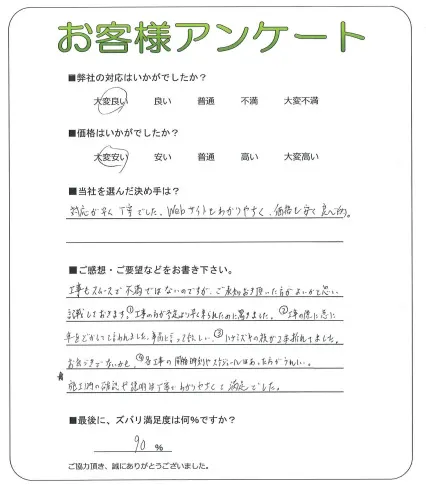 お客様アンケート
■弊社の対応はいかがでしたか?
大変良い 良い 普通 不満 大変不満
■価格はいかがでしたか?
大変安い 安い 普通 高い 大変高い
■当社を選んだ決め手は?
対応が早く丁寧でした。Webサイトもわかりやすく、価格も安く良心的。
■ご感想・ご要望などをお書き下さい。
工事もスムーズで不満ではないのですが、ご承知おき頂いた方がよいかと思い
記載しておきます。①工事の方が予定より早く来られたのに驚きました。②工事の際に急に
車をどかしてと言われました。事前に言ってほしい。③ハナミズキの枝が2本折れてました。
④各工事の開始時刻やスケジュールはあった方がうれしい。
施工内容の確認や説明は丁寧でわかりやすくて満足でした。
■最後に、ズバリ満足度は何%ですか?
90 %
ご協力頂き、誠にありがとうございました。